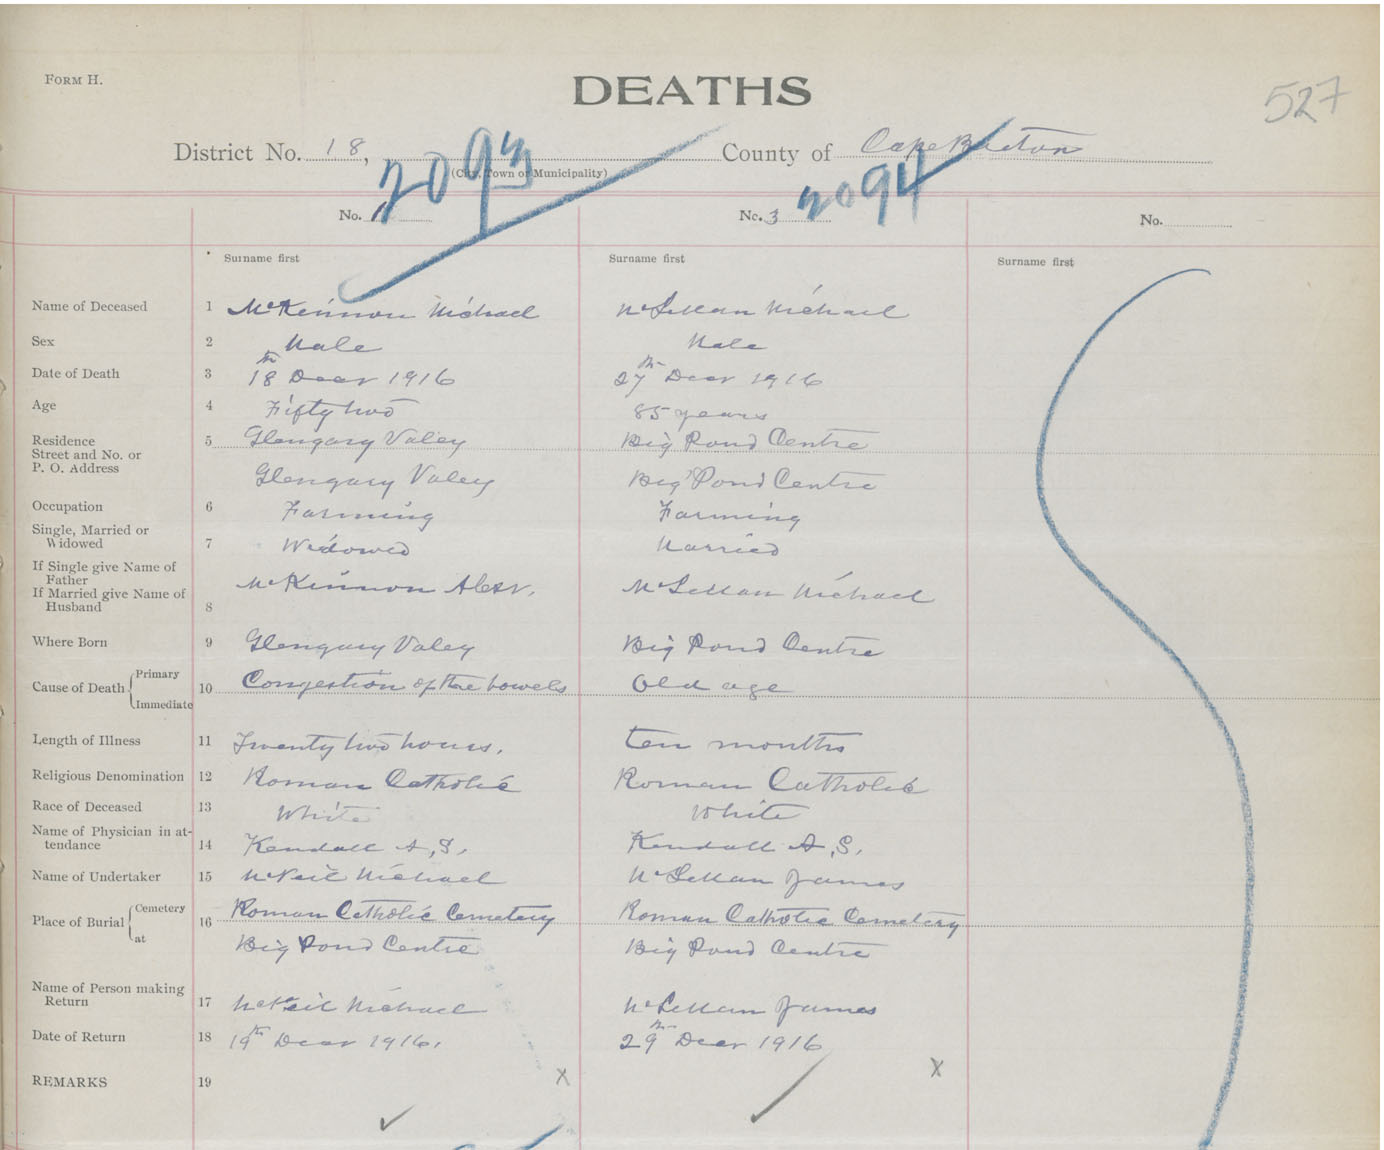 FORM H.
DEATHS
527
District No. 18,
(City, Town or Municipality)
County of Cape Breton
2093
2094
No. 1
No. 3
No.
Surname first
Surname first
Surname first
Name of Deceased 1 McKinnon Michael McLellan Michael
Sex 2 Male Male
Date of Death 3 18th Decr 1916 27th Decr 1916
Age 4 Fifty two 85 years
Residence 5 Glengary Valey Big Pond Centre
Street and No. or
P. O. Address Glengary Valey Big Pond Centre
Occupation 6 Farming Farming
Single, Married or
Widowed 7 Widowed Married
If Single give Name of
Father
If Married give Name of
Husband 8 McKinnon Alexr. McLellan Michael
Where Born 9 Glengary Valey Big Pond Centre
Cause of Death Primary
Immediate 10 Congestion of the bowels Old age
Length of Illness 11 Twenty two hours. ten months
Religious Denomination 12 Roman Catholic Roman Catholic
Race of Deceased 13 White White
Name of Physician in at-
tendance 14 Kendall A, S. Kendall A, S.
Name of Undertaker 15 McNeil Michael McLellan James
Place of Burial Cemetery 16 Roman Catholic Cemetery Roman Catholic Cemetery
at Big Pond Centre Big Pond Centre
Name of Person making
Return 17 McNeil Michael McLellan James
Date of Return 18 19th Decr 1916. 29th Decr 1916
REMARKS 19 x x